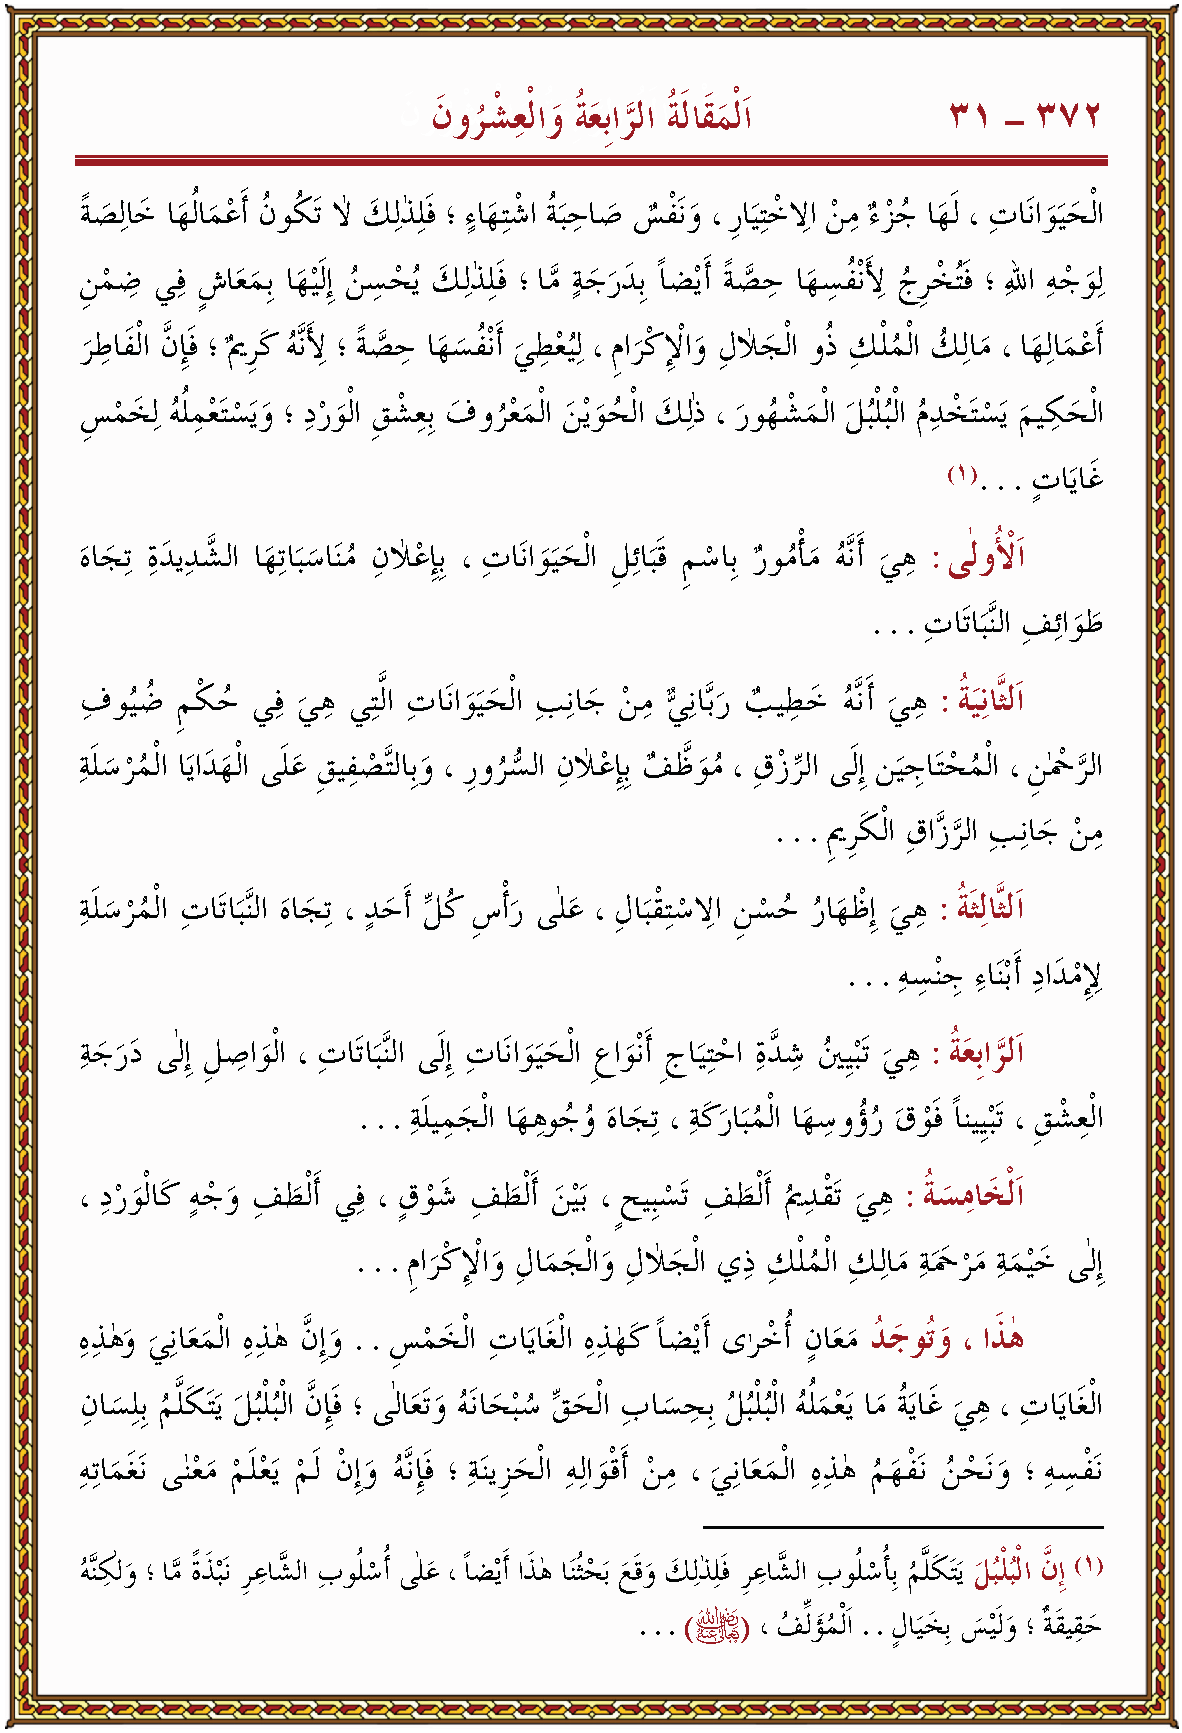 ٣٧٢ – ٣١ اَلْمَقَالَةُ الرَّابِعَةُ وَالْعِشْرُونَ
الْحَيَوَانَاتِ ، لَهَا جُزْءٌ مِنْ الِاخْتِيَارِ ، وَنَفْسٌ صَاحِبَةُ اشْتِهَاءٍ ؛ فَلِذٰلِكَ لَا تَكُونُ أَعْمَالُهَا خَالِصَةً
لِوَجْهِ اللهِ ؛ فَتُخْرِجُ لِأَنْفُسِهَا حِصَّةً أَيْضاً بِدَرَجَةٍ مَّا ؛ فَلِذٰلِكَ يُحْسِنُ إِلَيْهَا بِمَعَاشٍ فِي ضِمْنِ
أَعْمَالِهَا ، مَالِكُ الْمُلْكِ ذُو الْجَلَالِ وَالْإِكْرَامِ ، لِيُعْطِيَ أَنْفُسَهَا حِصَّةً ؛ لِأَنَّهُ كَرِيمٌ ؛ فَإِنَّ الْفَاطِرَ
الْحَكِيمَ يَسْتَخْدِمُ الْبُلْبُلَ الْمَشْهُورَ ، ذٰلِكَ الْحُوَيْنَ الْمَعْرُوفَ بِعِشْقِ الْوَرْدِ ؛ وَيَسْتَعْمِلُهُ لِخَمْسِ
غَايَاتٍ . . .(١)
اَلْأُولٰى : هِيَ أَنَّهُ مَأْمُورٌ بِاسْمِ قَبَائِلِ الْحَيَوَانَاتِ ، بِإِعْلَانِ مُنَاسَبَاتِهَا الشَّدِيدَةِ تِجَاهَ
طَوَائِفِ النَّبَاتَاتِ . . .
اَلثَّانِيَةُ : هِيَ أَنَّهُ خَطِيبٌ رَبَّانِيٌّ مِنْ جَانِبِ الْحَيَوَانَاتِ الَّتِي هِيَ فِي حُكْمِ ضُيُوفِ
الرَّحْمٰنِ ، الْمُحْتَاجِينَ إِلَى الرِّزْقِ ، مُوَظَّفٌ بِإِعْلَانِ السُّرُورِ ، وَبِالتَّصْفِيقِ عَلَى الْهَدَايَا الْمُرْسَلَةِ
مِنْ جَانِبِ الرَّزَّاقِ الْكَرِيمِ . . .
اَلثَّالِثَةُ : هِيَ إِظْهَارُ حُسْنِ الِاسْتِقْبَالِ ، عَلٰى رَأْسِ كُلِّ أَحَدٍ ، تِجَاهَ النَّبَاتَاتِ الْمُرْسَلَةِ
لِإِمْدَادِ أَبْنَاءِ جِنْسِهِ . . .
اَلرَّابِعَةُ : هِيَ تَبْيِينُ شِدَّةِ احْتِيَاجِ أَنْوَاعِ الْحَيَوَانَاتِ إِلَى النَّبَاتَاتِ ، الْوَاصِلِ إِلٰى دَرَجَةِ
الْعِشْقِ ، تَبْيِيناً فَوْقَ رُؤُوسِهَا الْمُبَارَكَةِ ، تِجَاهَ وُجُوهِهَا الْجَمِيلَةِ . . .
اَلْخَامِسَةُ : هِيَ تَقْدِيمُ أَلْطَفِ تَسْبِيحٍ ، بَيْنَ أَلْطَفِ شَوْقٍ ، فِي أَلْطَفِ وَجْهٍ كَالْوَرْدِ ،
إِلٰى خَيْمَةِ مَرْحَمَةِ مَالِكِ الْمُلْكِ ذِي الْجَلَالِ وَالْجَمَالِ وَالْإِكْرَامِ . . .
هٰذَا ، وَتُوجَدُ مَعَانٍ أُخْرٰى أَيْضاً كَهٰذِهِ الْغَايَاتِ الْخَمْسِ . . وَإِنَّ هٰذِهِ الْمَعَانِيَ وَهٰذِهِ
الْغَايَاتِ ، هِيَ غَايَةُ مَا يَعْمَلُهُ الْبُلْبُلُ بِحِسَابِ الْحَقِّ سُبْحَانَهُ وَتَعَالٰى ؛ فَإِنَّ الْبُلْبُلَ يَتَكَلَّمُ بِلِسَانِ
نَفْسِهِ ؛ وَنَحْنُ نَفْهَمُ هٰذِهِ الْمَعَانِيَ ، مِنْ أَقْوَالِهِ الْحَزِينَةِ ؛ فَإِنَّهُ وَإِنْ لَمْ يَعْلَمْ مَعْنٰى نَغَمَاتِهِ
(١) إِنَّ الْبُلْبُلَ يَتَكَلَّمُ بِأُسْلُوبِ الشَّاعِرِ فَلِذٰلِكَ وَقَعَ بَحْثُنَا هٰذَا أَيْضاً ، عَلٰى أُسْلُوبِ الشَّاعِرِ نَبْذَةً مَّا ؛ وَلٰكِنَّهُ
حَقِيقَةٌ ؛ وَلَيْسَ بِخَيَالٍ . . اَلْمُؤَلِّفُ ، (رَضِيَ اللهُ تَعَالَى عَنْهُ) . . .